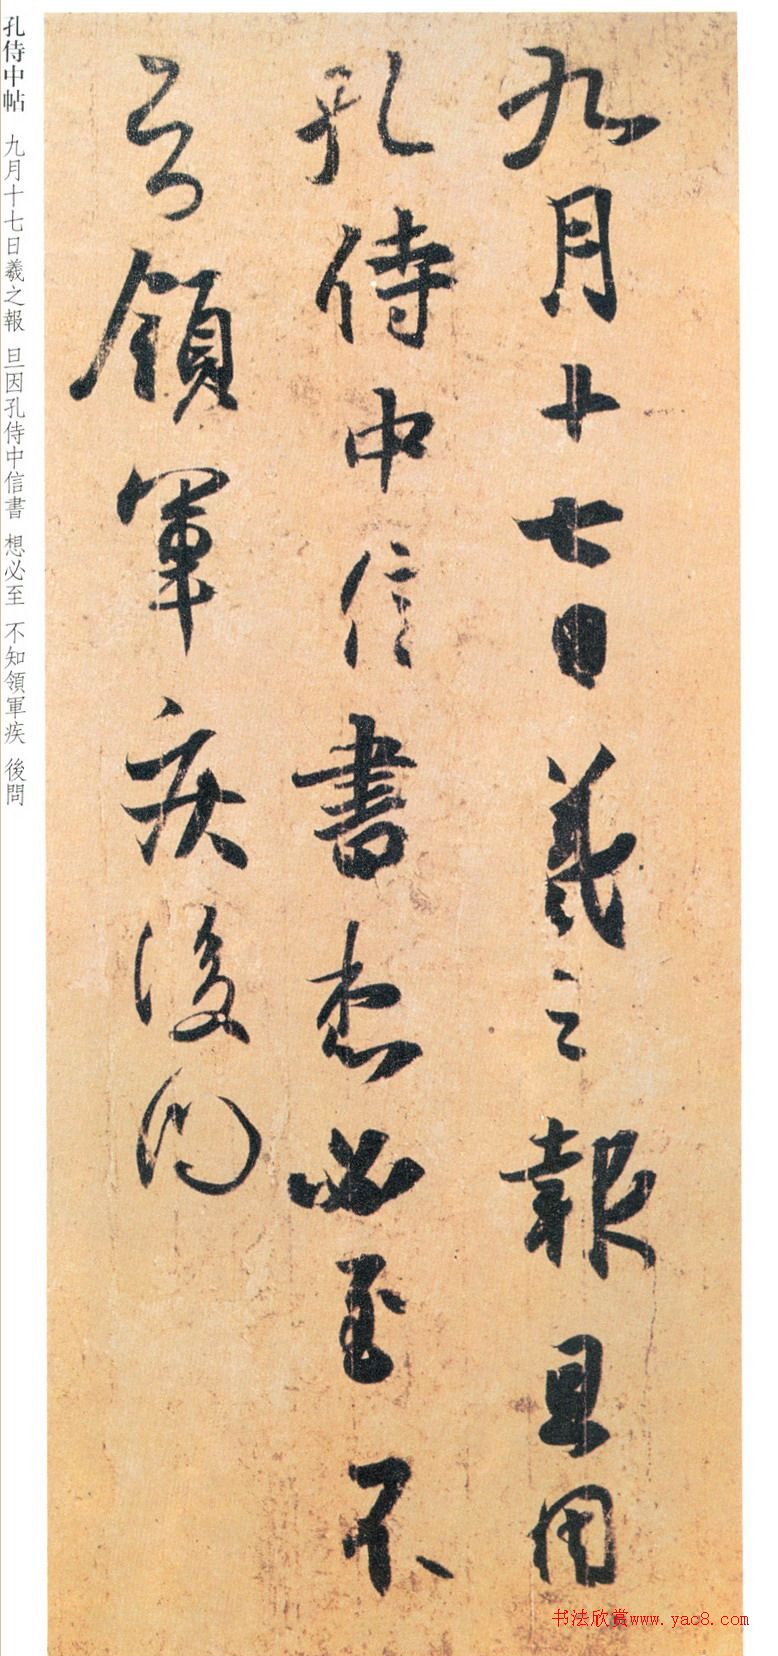 九月十七日羲之報且因
孔侍中信書想必至不
知領軍疾後問
孔侍中帖 九月十七日羲之報 旦因孔侍中信書 想必至 不知領軍疾 後問
书法欣赏www.yac8.com